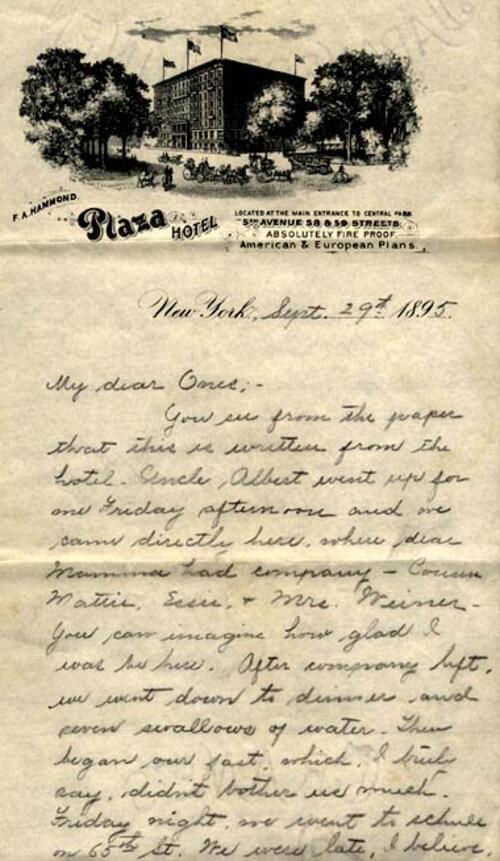 F. A. HAMMOND.
Plaza HOTEL
LOCATED AT THE MAIN ENTRANCE TO CENTRAL PARK
5TH AVENUE 58 & 59 STREETS
ABSOLUTELY FIRE PROOF
American & European Plans.
New York, Sept. 29th 1895.
My dear Ones;-
You see from the paper
that this is written from the
hotel. Uncle Albert went up for
me Friday afternoon and we
came directly here, where dear
Mamma had company - Cousin
Mattie, Essie, + Mrs. Weiner -
You can imagine how glad I
was to be here. After company left,
we went down to dinner and
seven swallows of water. Then
began our fast, which, I truly
say, didn't bother us much.
Friday night, we went to schule
on 65th St. We were late, I believe,